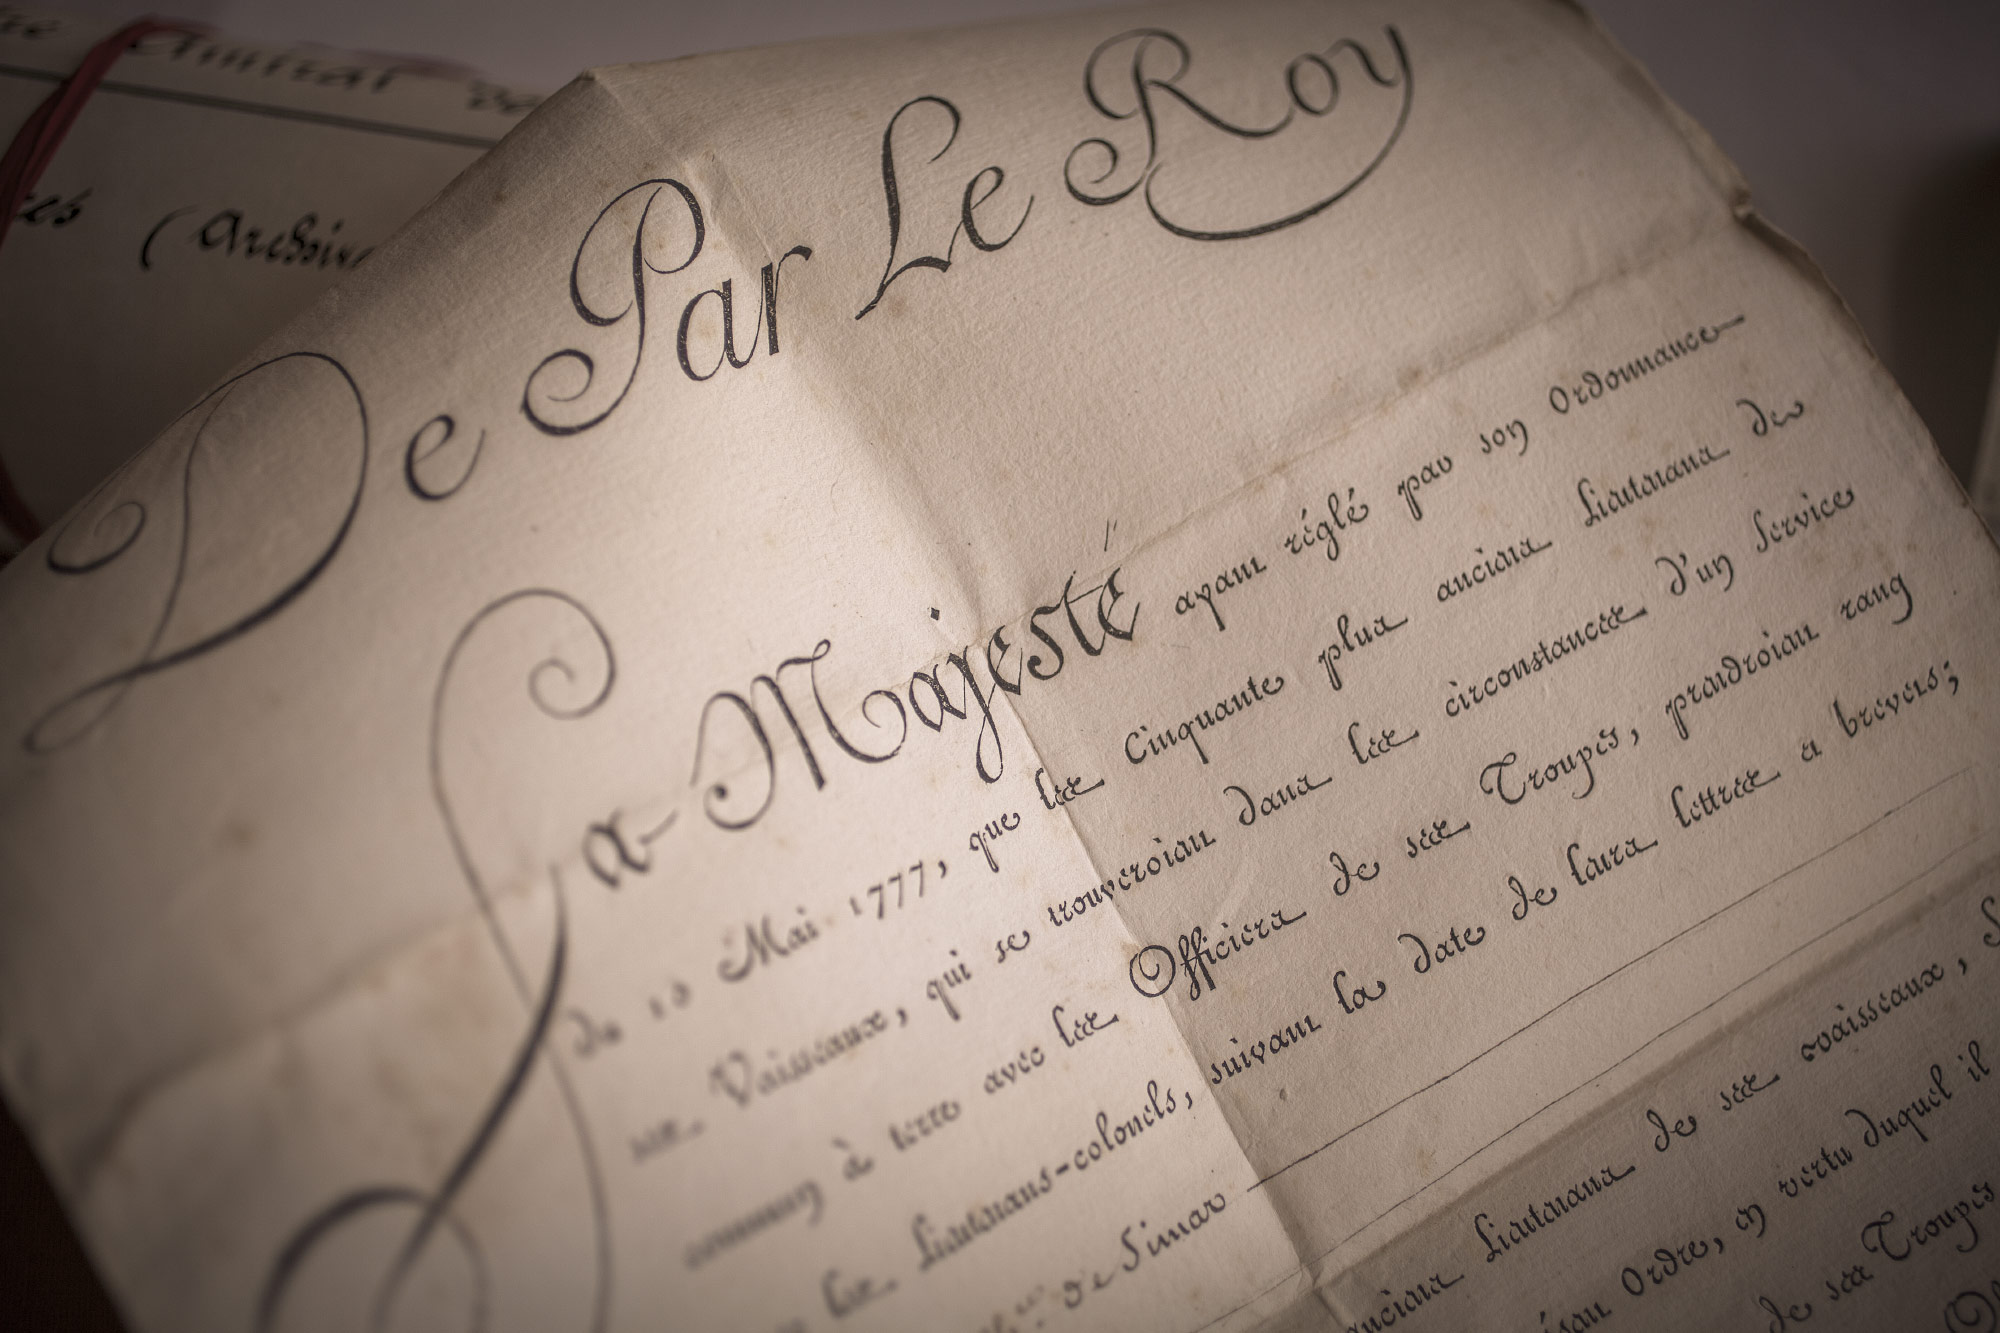 Amiral de
(Archive
De Par Le Roy
Sa Majesté ayant réglé par son Ordonnance
du 10 Mai 1777, que les Cinquante plus anciens Lieutenans de
ses Vaisseaux, qui se trouveroient dans les circonstances d'un Service
commun à terre avec les Officiers de ses Troupes, prendroient rang
les Lieutenans-colonels, suivant la date de leurs lettres a brevets;
de Simar
anciens Lieutenans de ses vaisseaux,
Ordre, en vertu duquel il
de ses Troupes